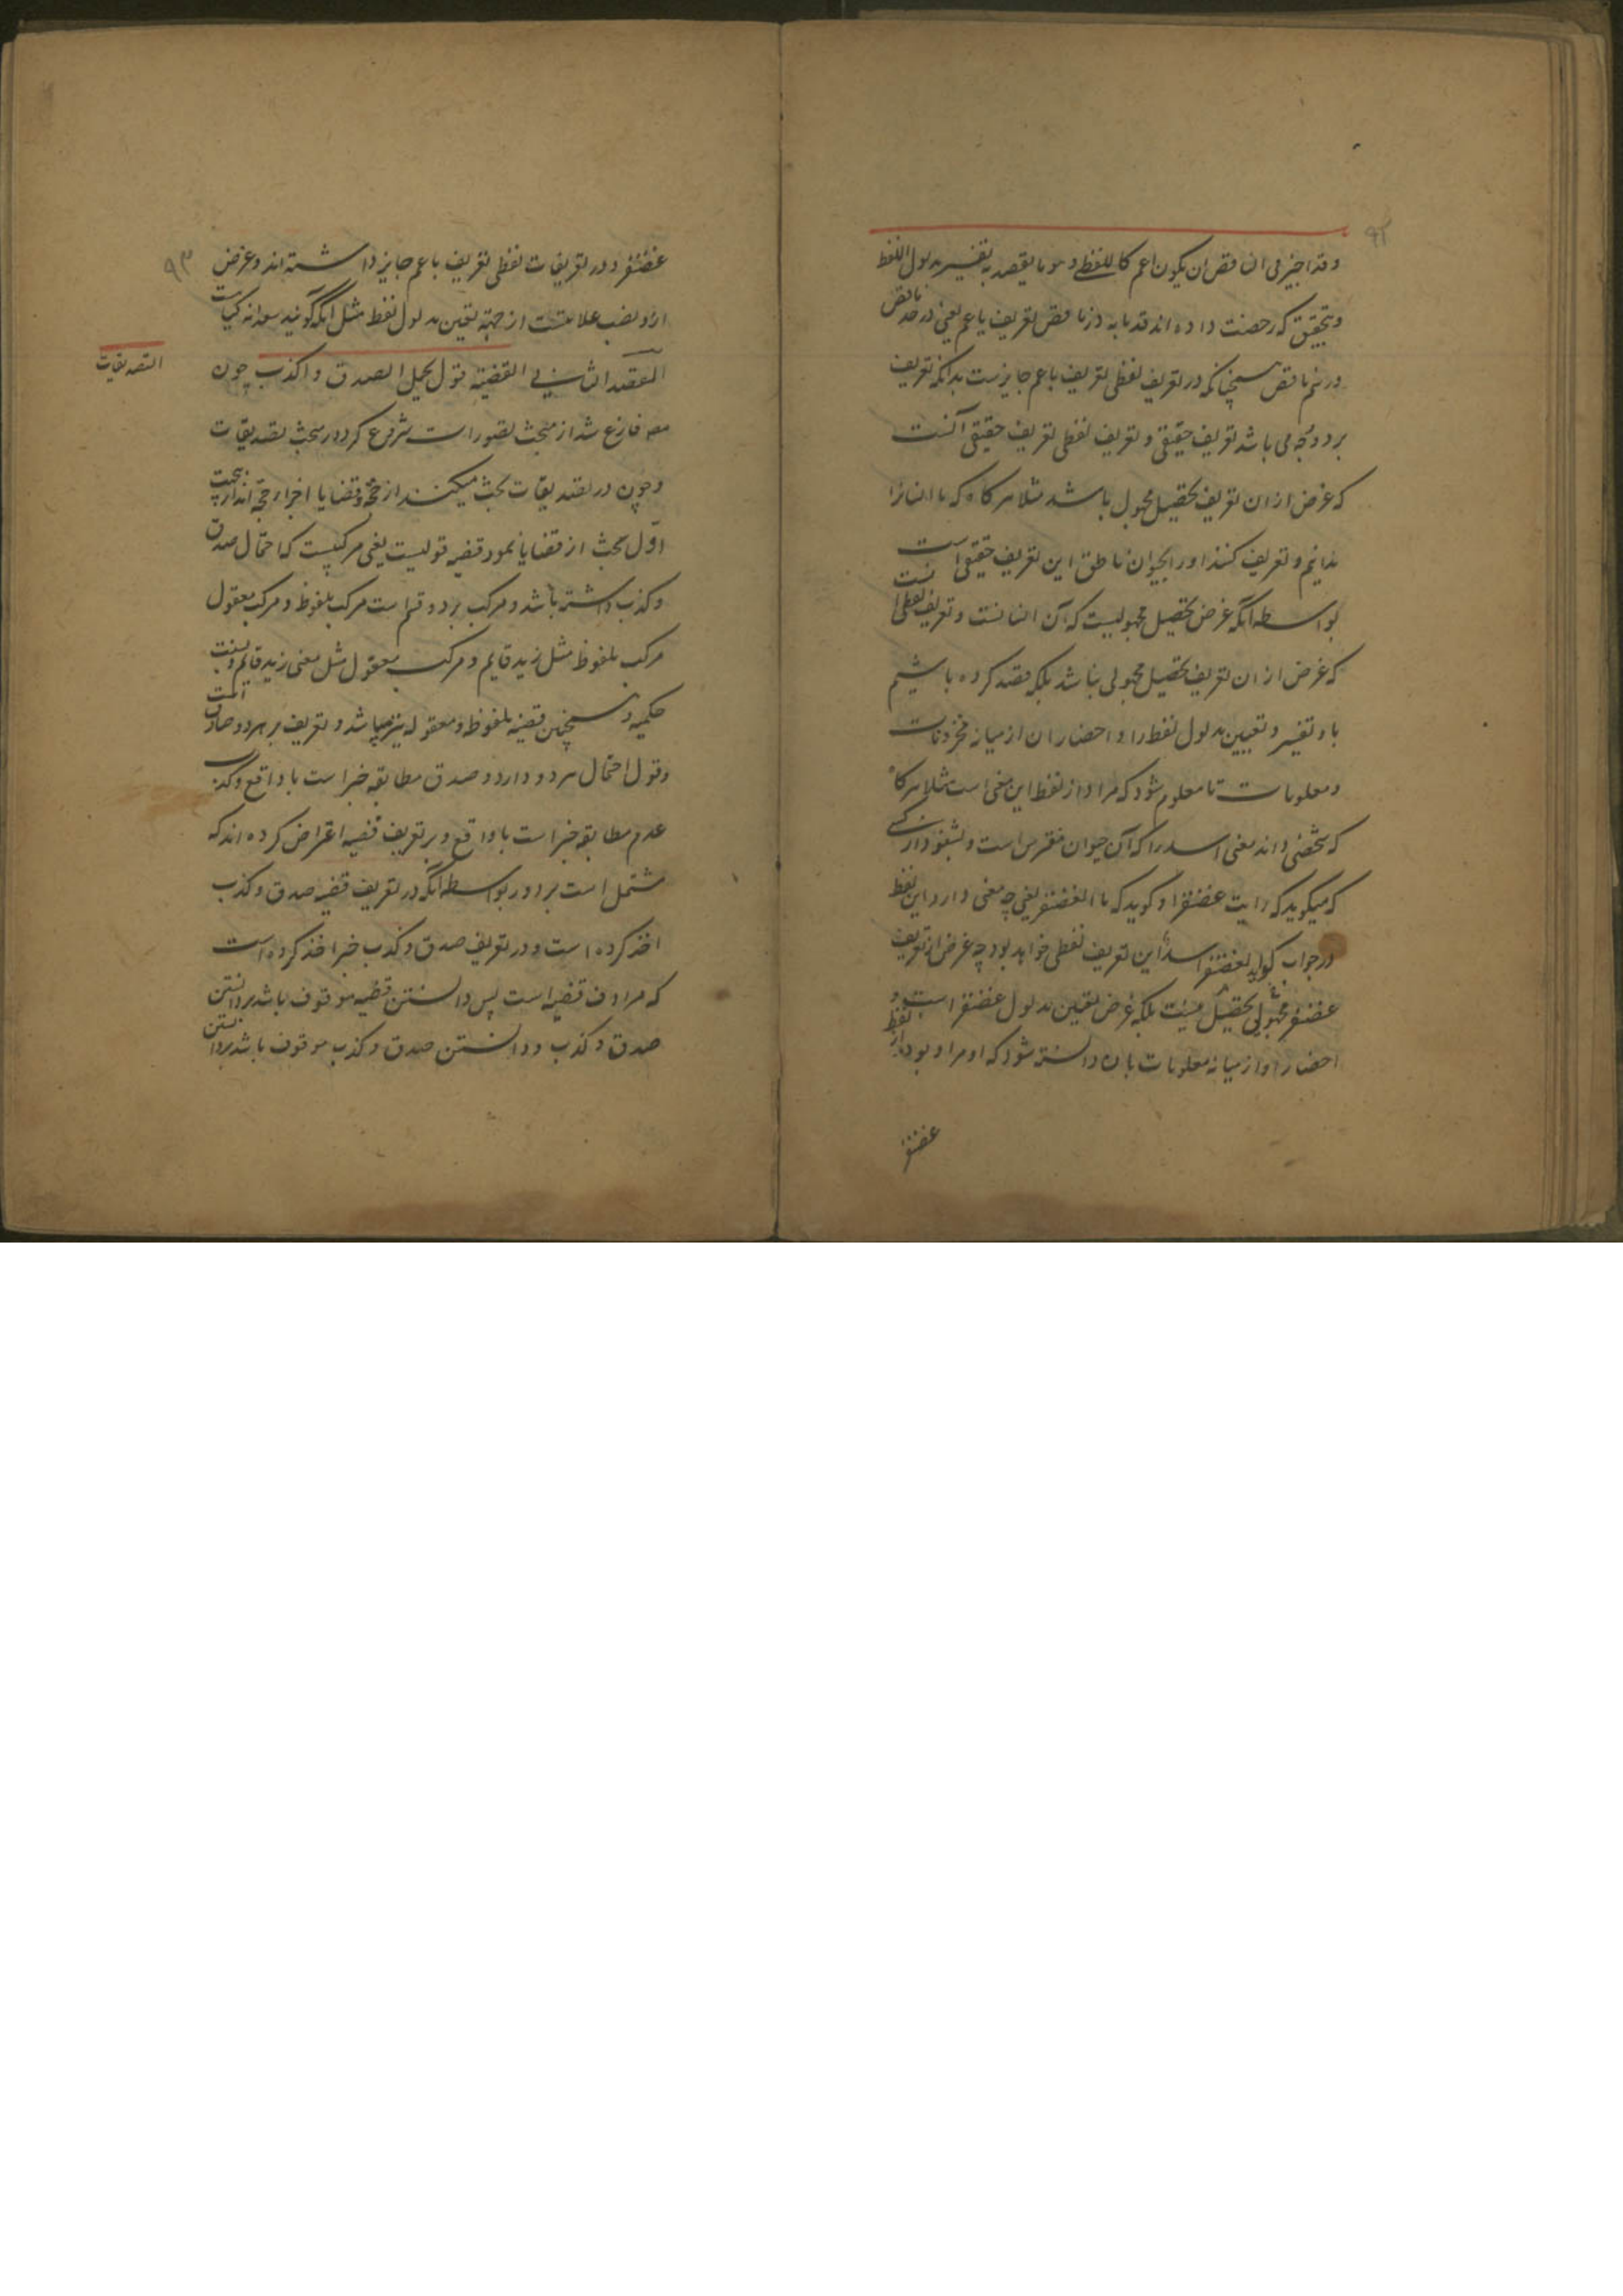 ۹۲
وقد اجیز فی الناقص ان یکون اعم کاللفظی و هو ما یقصد به تفسیر مدلول اللفظ
و بتحقیق که رخصت داده اند قدما به در ناقص تعریف باعم یعنی در حد ناقص
و رسم ناقص همچنانکه در تعریف لفظی تعریف باعم جایزست بدانکه تعریف
بر دو وجه می باشد تعریف حقیقی و تعریف لفظی تعریف حقیقی آنست
که غرض از ان تعریف تحصیل مجهول باشد مثلا هرگاه که ما انسانرا
ندانیم و تعریف کنند اورا بحیوان ناطق این تعریف حقیقی است
بواسطه آنکه غرض تحصیل مجهولیست که آن انسانست و تعریف لفظی آنست
که غرض از ان تعریف تحصیل مجهولی نباشد بلکه قصد کرده باشیم
باو تفسیر و تعیین مدلول لفظ را و احضار ان از میانه مخزونات
و معلومات تا معلوم شود که مراد از لفظ این معنی است مثلا هرگاه
که شخصی داند معنی اسد را که آن حیوان مفترس است و بشنود از کسی
که میگوید که رایت غضنفرا و گوید که ما الغضنفر یعنی چه معنی دارد این لفظ
در جواب گوید الغضنفر اسد این تعریف لفظی خواهد بود چه غرض از تعریف
غضنفر تحصیل مجهولی نیست بلکه غرض تعیین مدلول غضنفر است و
احضار او از میانه معلومات تا دانسته شود که او مراد بود از لفظ
غضنفر
۹۳
غضنفر و در تعریفات لفظی تعریف باعم جایز داشته اند و غرض
ازو نصب علامتست از جهة تعین مدلول لفظ مثل آنکه گویند سعدانه گیاهست
المقصد الثانی فی القضیه قول یحتمل الصدق و الکذب چون
التصدیقات
مصه فارغ شد از مبحث تصورات شروع کرد در مبحث تصدیقات
و چون در تصدیقات بحث میکنند از حجة و قضایا اجزاء حجة اند از این جهت
اول بحث از قضایا نمود قضیه قولیست یعنی مرکبیست که احتمال صدق
و کذب داشته باشد و مرکب بر دو قسم است مرکب ملفوظ و مرکب معقول
مرکب ملفوظ مثل زید قایم و مرکب معقول مثل معنی زید قایم و نسبت
حکمیه و همچنین قضیه ملفوظه و معقوله نیز میباشد و تعریف بر هر دو صادق است
و قول احتمال هر دو دارد و صدق مطابقه خبر است با واقع و کذب
عدم مطابقه خبر است با واقع و بر تعریف قضیه اعتراض کرده اند که
مشتمل است بر دور بواسطه آنکه در تعریف قضیه صدق و کذب
اخذ کرده است و در تعریف صدق و کذب خبر اخذ کرده است
که مرادف قضیه است پس دانستن قضیه موقوف باشد بر دانستن
صدق و کذب و دانستن صدق و کذب موقوف باشد بر دانستن